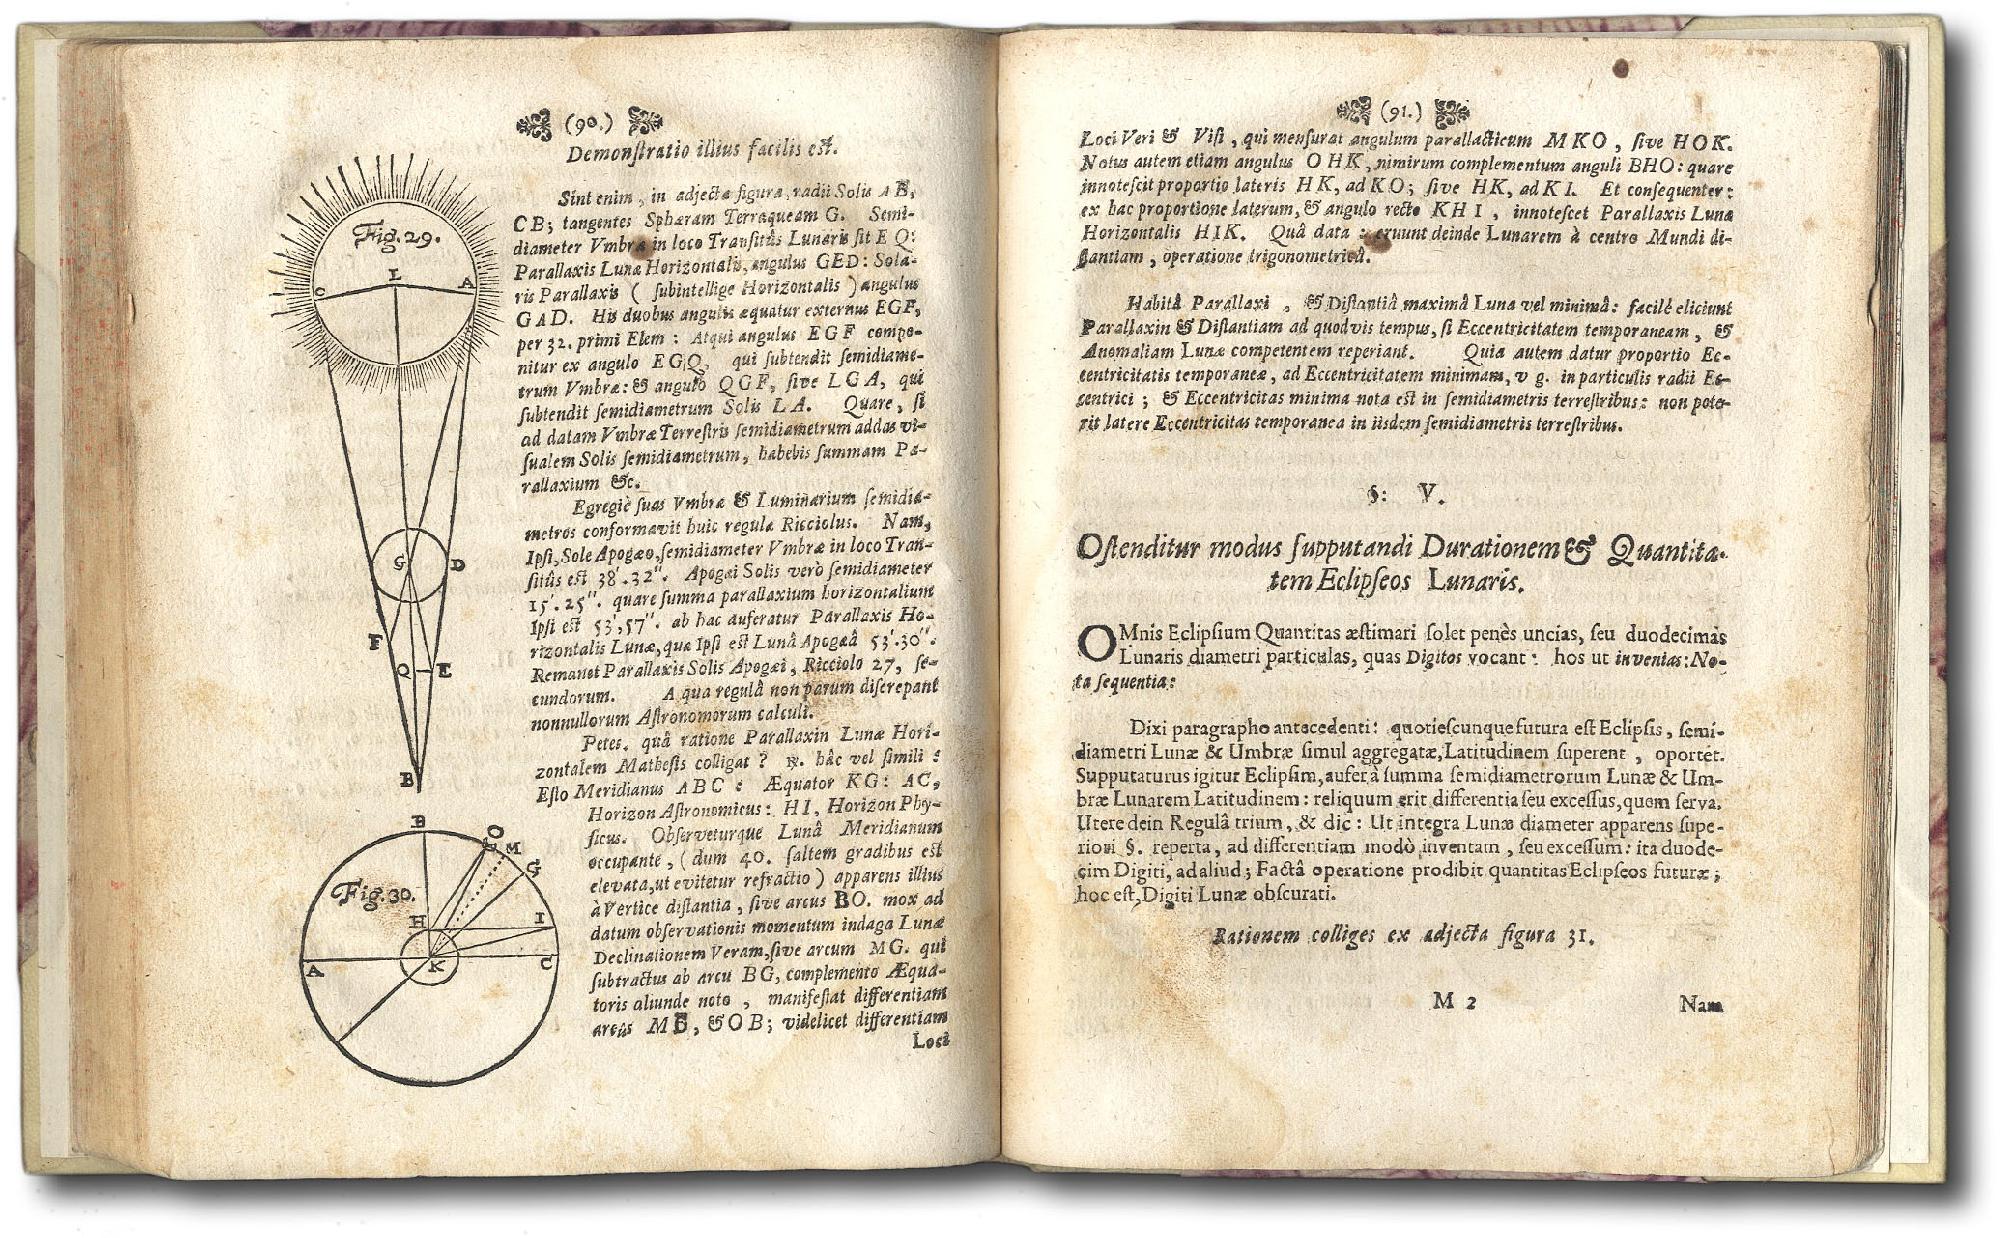 (90.)
Demonſtratio illius facilis eſt.
Fig. 29.
L
C
A
G
D
F
Q
E
B
Sint enim, in adjecta figura, radii Solis AB,
CB; tangentes Sphæram Terraqueam G. Semi-
diameter Vmbræ in loco Tranſitûs Lunaris ſit EQ:
Parallaxis Lunæ Horizontalis, angulus GED: Sola-
ris Parallaxis ( ſubintellige Horizontalis ) angulus
GAD. His duobus angulis æquatur externus EGF,
per 32. primi Elem: Atqui angulus EGF compo-
nitur ex angulo EGQ, qui ſubtendit ſemidiame-
trum Vmbræ: & angulo QGF, ſive LGA, qui
ſubtendit ſemidiametrum Solis LA. Quare, ſi
ad datam Vmbræ Terreſtris ſemidiametrum addas vi-
ſualem Solis ſemidiametrum, habebis ſummam Pa-
rallaxium &c.
Egregiè ſuas Vmbræ & Luminarium ſemidia-
metros conformavit huic regulæ Ricciolus. Nam,
Ipſi, Sole Apogæo, ſemidiameter Vmbræ in loco Tran-
ſitûs eſt 38'.32''. Apogæi Solis verò ſemidiameter
15'.25''. quare ſumma parallaxium horizontalium
Ipſi eſt 53',57''. ab hac auferatur Parallaxis Ho-
rizontalis Lunæ, quæ Ipſi eſt Lunâ Apogæâ 53'.30''.
Remanet Parallaxis Solis Apogæi, Ricciolo 27, ſe-
cundorum. A qua regulâ non parum diſcrepant
nonnullorum Aſtronomorum calculi.
Petes. quâ ratione Parallaxin Lunæ Hori-
zontalem Matheſis colligat? ℞. hâc vel ſimili:
Eſto Meridianus ABC: Æquator KG: AC,
Horizon Aſtronomicus: HI, Horizon Phy-
ſicus. Obſerveturque Lunâ Meridianum
occupante, (dum 40. ſaltem gradibus eſt
elevata, ut evitetur refractio) apparens illius
à Vertice diſtantia, ſive arcus BO. mox ad
datum obſervationis momentum indaga Lunæ
Declinationem Veram, ſive arcum MG. qui
ſubtractus ab arcu BG, complemento Æqua-
toris aliunde noto, manifeſtat differentiam
arcûs MB, & OB; videlicet differentiam
Loci
Fig. 30.
B
O
M
G
H
I
A
K
C
(91.)
Loci Veri & Viſi, qui menſurat angulum parallacticum MKO, ſive HOK.
Notus autem etiam angulus OHK, nimirum complementum anguli BHO: quare
innoteſcit proportio lateris HK, ad KO; ſive HK, ad KI. Et conſequenter:
ex hac proportione laterum, & angulo recto KHI, innoteſcet Parallaxis Lunæ
Horizontalis HIK. Quâ data: eruunt deinde Lunarem à centro Mundi di-
ſtantiam, operatione trigonometricâ.
Habitâ Parallaxi, & Diſtantiâ maximâ Lunæ vel minimâ: facilè eliciunt
Parallaxin & Diſtantiam ad quodvis tempus, ſi Eccentricitatem temporaneam, &
Anomaliam Lunæ competentem reperiant. Quia autem datur proportio Ec-
centricitatis temporaneæ, ad Eccentricitatem minimam, v g. in particulis radii Ec-
centrici; & Eccentricitas minima nota eſt in ſemidiametris terreſtribus: non pote-
rit latere Eccentricitas temporanea in iisdem ſemidiametris terreſtribus.
§: V.
Oſtenditur modus ſupputandi Durationem & Quantita-
tem Eclipſeos Lunaris.
OMnis Eclipſium Quantitas æſtimari ſolet penès uncias, ſeu duodecimas
Lunaris diametri particulas, quas Digitos vocant: hos ut invenias: No-
ta ſequentia:
Dixi paragrapho antecedenti: quotieſcunque futura eſt Eclipſis, ſemi-
diametri Lunæ & Umbræ ſimul aggregatæ, Latitudinem ſuperent, oportet.
Supputaturus igitur Eclipſim, aufer à ſumma ſemidiametrorum Lunæ & Um-
bræ Lunarem Latitudinem: reliquum erit differentia ſeu exceſſus, quem ſerva.
Utere dein Regulâ trium, & dic: Ut integra Lunæ diameter apparens ſupe-
riori §. reperta, ad differentiam modò inventam, ſeu exceſſum: ita duode-
cim Digiti, ad aliud; Factâ operatione prodibit quantitas Eclipſeos futuræ;
hoc eſt, Digiti Lunæ obſcurati.
Rationem colliges ex adjecta figura 31.
M 2
Nam